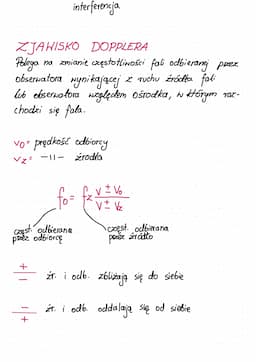 interferencja
ZJAWISKO DOPPLERA
Polega na zmianie częstotliwości fali odbieranej przez
obserwatora wynikającej z ruchu źródła fali
lub obserwatora względem ośrodka, w którym roz-
chodzi się fala.
v₀ = prędkość odbiorcy
v_z = -11- źródła
f₀ = f_z (v ± v₀) / (v ± v_z)
częst. odbierana
przez odbiorcę
częst. odbierana
przez źródło
+/- źr. i odb. zbliżają się do siebie
-/+ źr. i odb. oddalają się od siebie